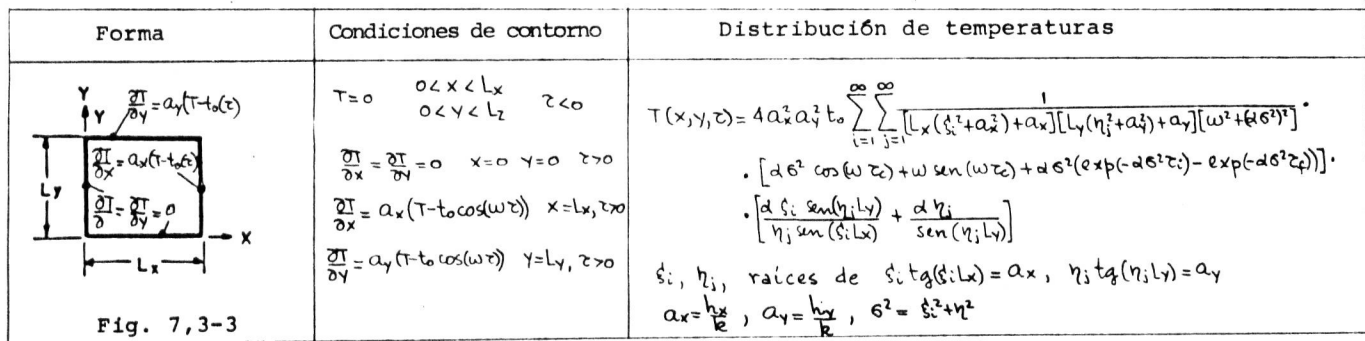 Forma
Condiciones de contorno
Distribución de temperaturas
Y
Y
∂T/∂y = ay(T-t₀(τ)
∂T/∂x = ax(T-t₀(τ)
∂T/∂ = ∂T/∂y = 0
Ly
Lx
X
Fig. 7,3-3
T=0 0<x<Lx τ<0
0<y<L₂
∂T/∂x = ∂T/∂y = 0 x=0 y=0 τ>0
∂T/∂x = ax(T-t₀cos(ωτ)) x=Lx, τ>0
∂T/∂y = ay(T-t₀cos(ωτ)) y=Ly, τ>0
T(x,y,τ)= 4ax²ay² t₀ ∑_{i=1}^{∞} ∑_{j=1}^{∞} 1/([Lx(ξi²+ax²)+ax][Ly(ηj²+ay²)+ay][ω²+(ασ²)²]) ·
· [ασ² cos(ωτc)+ω sen(ωτc)+ασ²(exp(-ασ²τi)-exp(-ασ²τf))] ·
· [α ξi sen(ηjLy)/(ηj sen(ξiLx)) + α ηj/sen(ηjLy)]
ξi, ηj, raíces de ξi tg(ξiLx)=ax, ηj tg(ηjLy)=ay
ax = hx/k, ay = hy/k, σ² = ξi²+η²